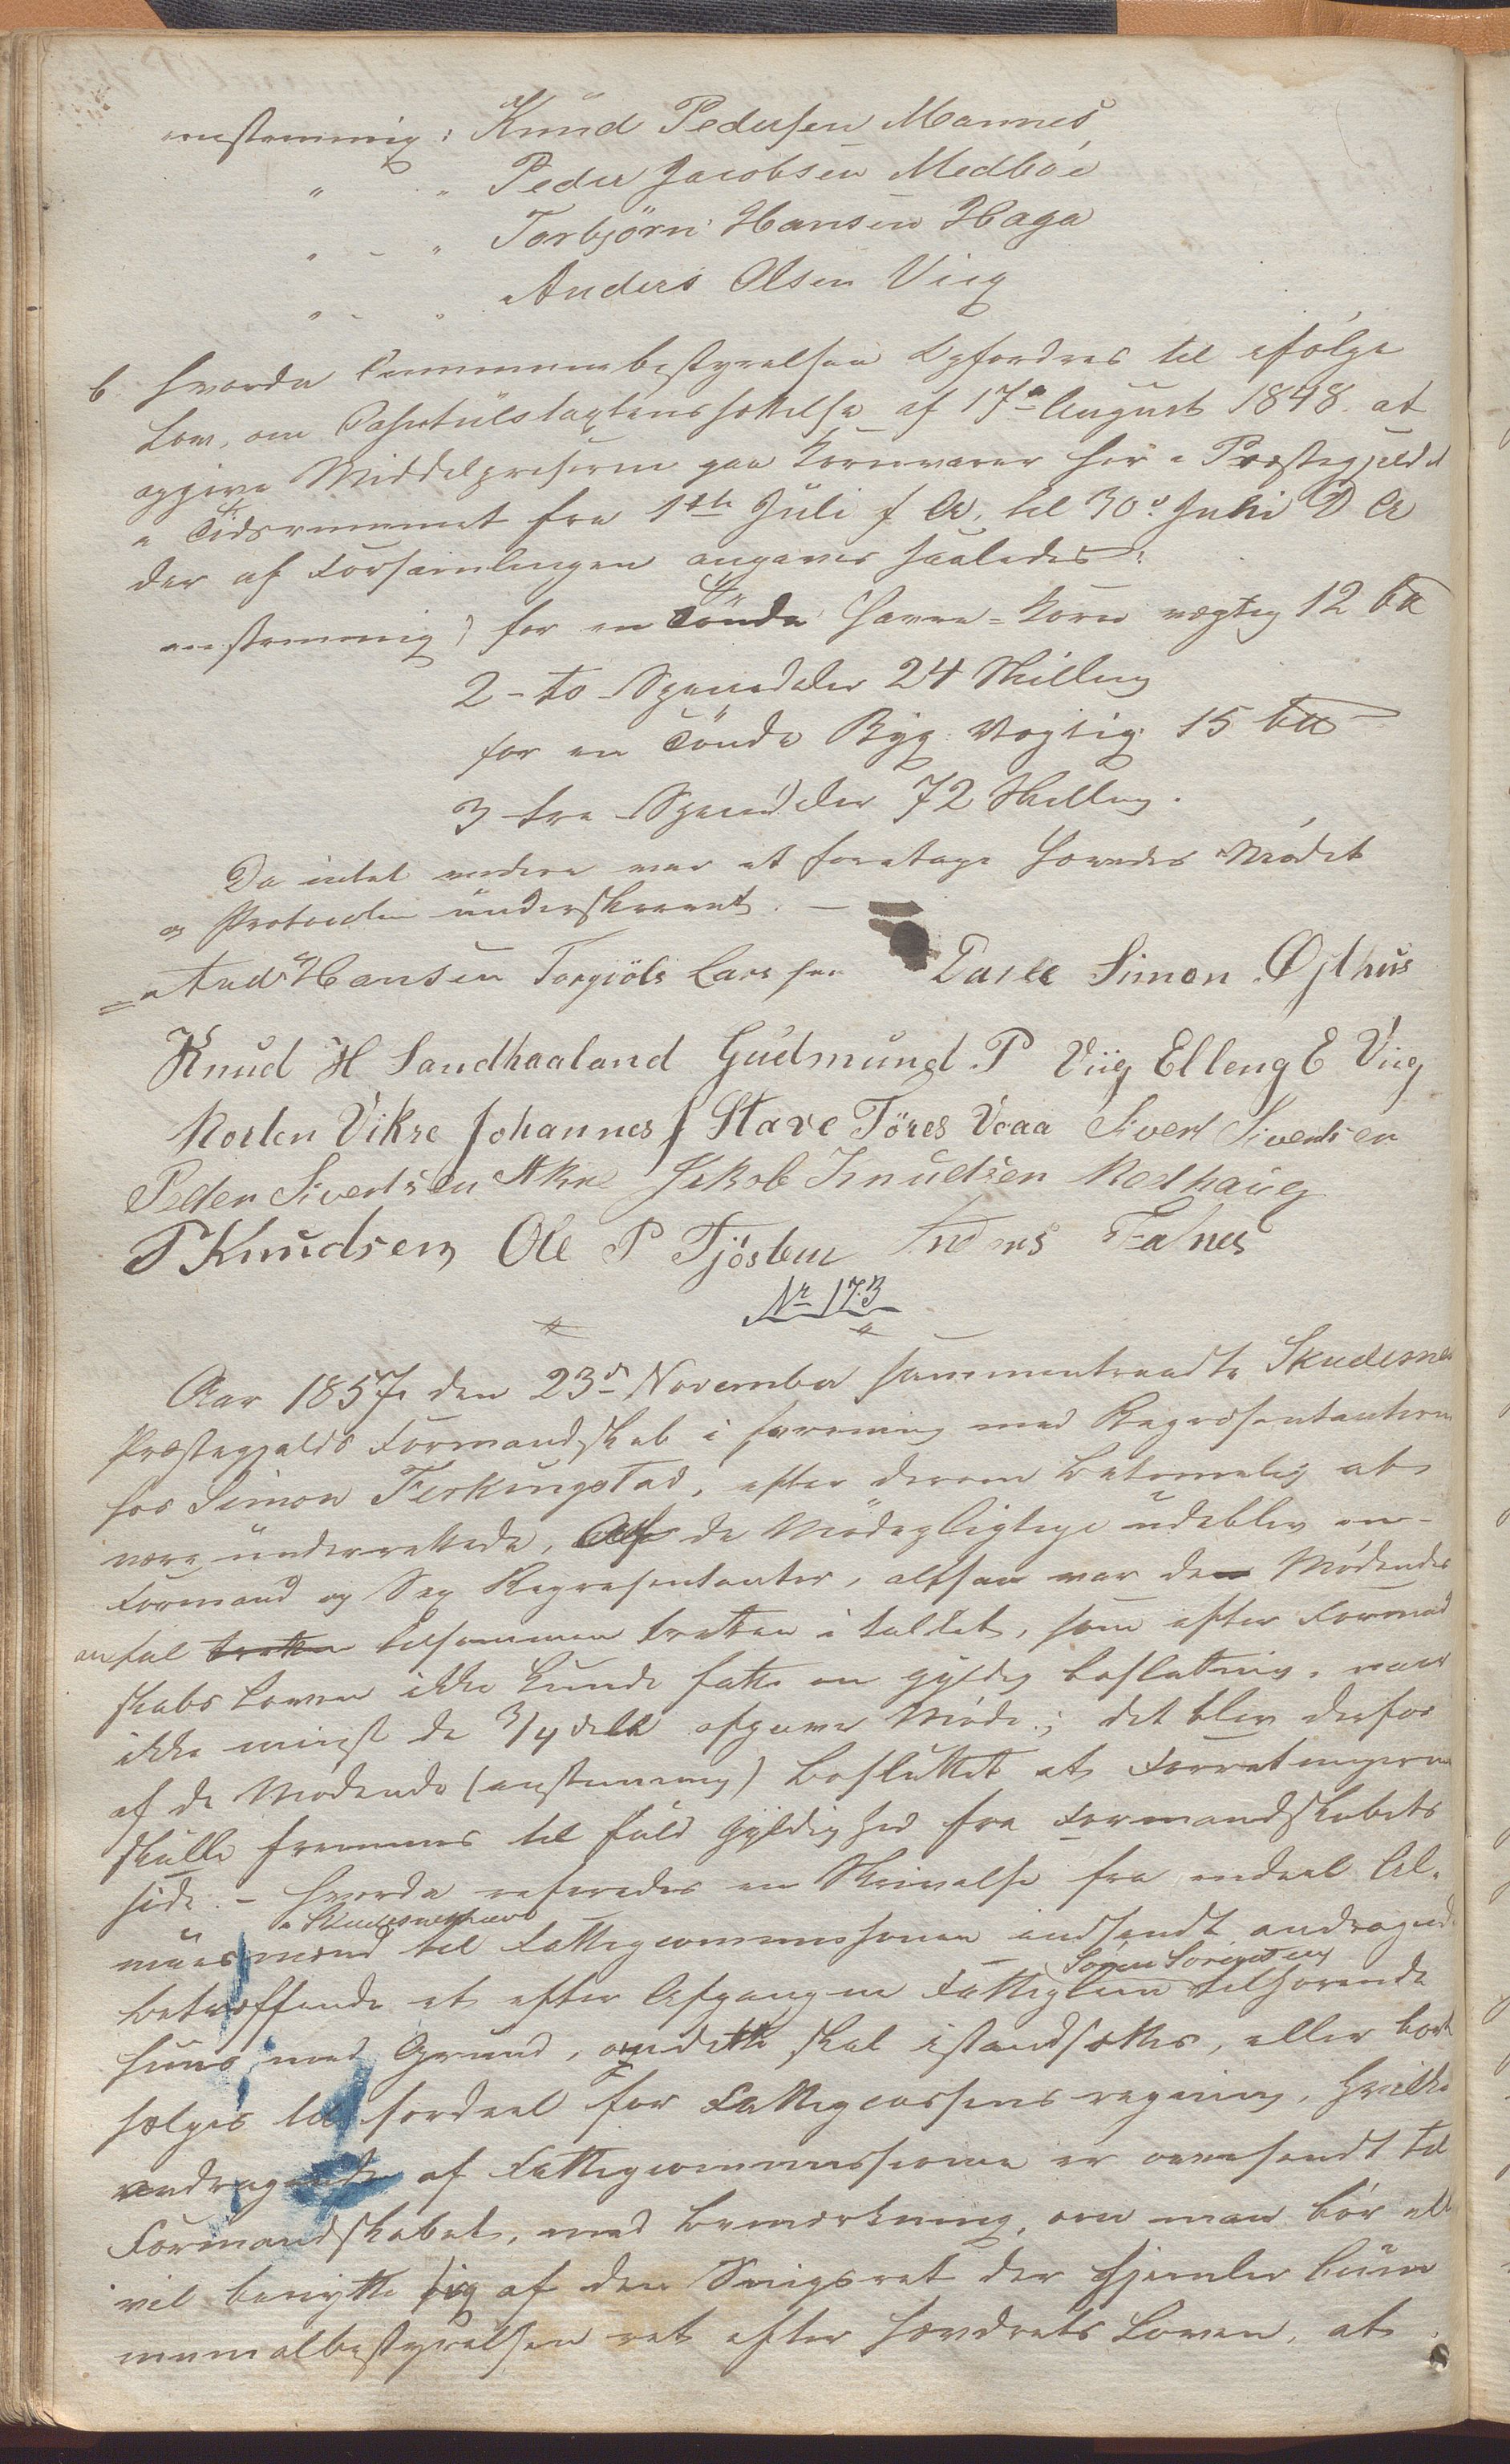 eenstemmig: Knud Pedersen Mannes
" " Peder Jacobsen Medböe
" - " Torbjörn Hansen Haga
" - " Anders Olsen Viig
6 hvorda Communebestyrelsen Opfordres til ifølge
Lov, om Capitulstaxtens sættelse af 17de August 1848. at
opgive Middelpriserne paa Kornvarer her i Præstegjeldet
i Tidsrummet fra 1ste Juli f A, til 30te Juni D A
der af Forsamlingen angaves saaledes:
eenstemmig) for en Tönde Havre-Korn vegtig 12
2 - to Speciedaler 24 Skilling
for en Tönde Byg. Vegtig 15
3 tre Speciedaler 72 Skilling.
Da intet videre var at foretage hævedes Mödet
og Protocolen underskrevet. —
And. Hansen Torgiöls Larssen Simon Østhus
Knud H Sandhaaland Gudmund. P Viig Elleng E Viig
Morten Vikre Johannes J Stave Töres Veaa Sivert Sivertsen
Peder Sivertsen Jakob Knudsen Medhaug
P Knudsen Ole P Tjösten Anders Falnes
Nr 173
Aar 1857 den 23de November sammentraadte Skudesnes
Præstegjelds Formandskab i forening med Repræsentanterne
hos Simon Ferkingstad, efter derom betimelig at
være underrettede, Af de Mødepligtige udeblev en
Formand og Sex Repræsentanter, altsaa var de Mødendes
antal tretten tilsammen tretten i tallet, som efter Formand
skabs Loven ikke kunde fatte en gyldig beslutning, naar
ikke mindst de 3/4 dele afgiver Møde; det blev derfor
af de Mødende (enstemmig) besluttet at Forretningerne
skulle fremmes til fuld Gyldighed fra Formandskabets
side. - hvorda refereredes en Skrivelse fra endeel Al-
i Skudesneshavn
muesmænd til Fattigcommissionen indsendt andragende
Sören Sörensen
betræffende et efter Afgangne Fattiglem tilhörende
huus med Grund, om dette skal istandsættes, eller bort
sælges til fordeel for Fattigcassens regning, hvilke
andragende af Fattigcommissionen er oversendt til
Formandskabet, med bemerkning, om man bör eller
vil benytte sig af den der hjemler Com
munalbestyrelsen ret efter Loven, at